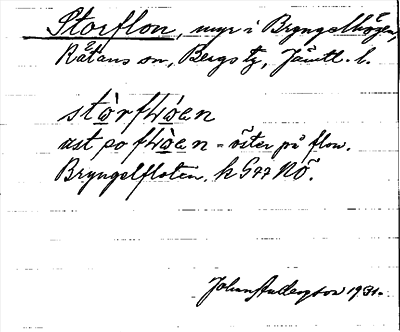 Storflon, myr i Bryngelhögen,
Råtans sn, Bergs tg, Jämtl. l.
stòrfɫòɑn
ust po fɫòɑn = öster på flon.
Bryngelfloten. h G77 NÖ.
Johan Anderson 1931.